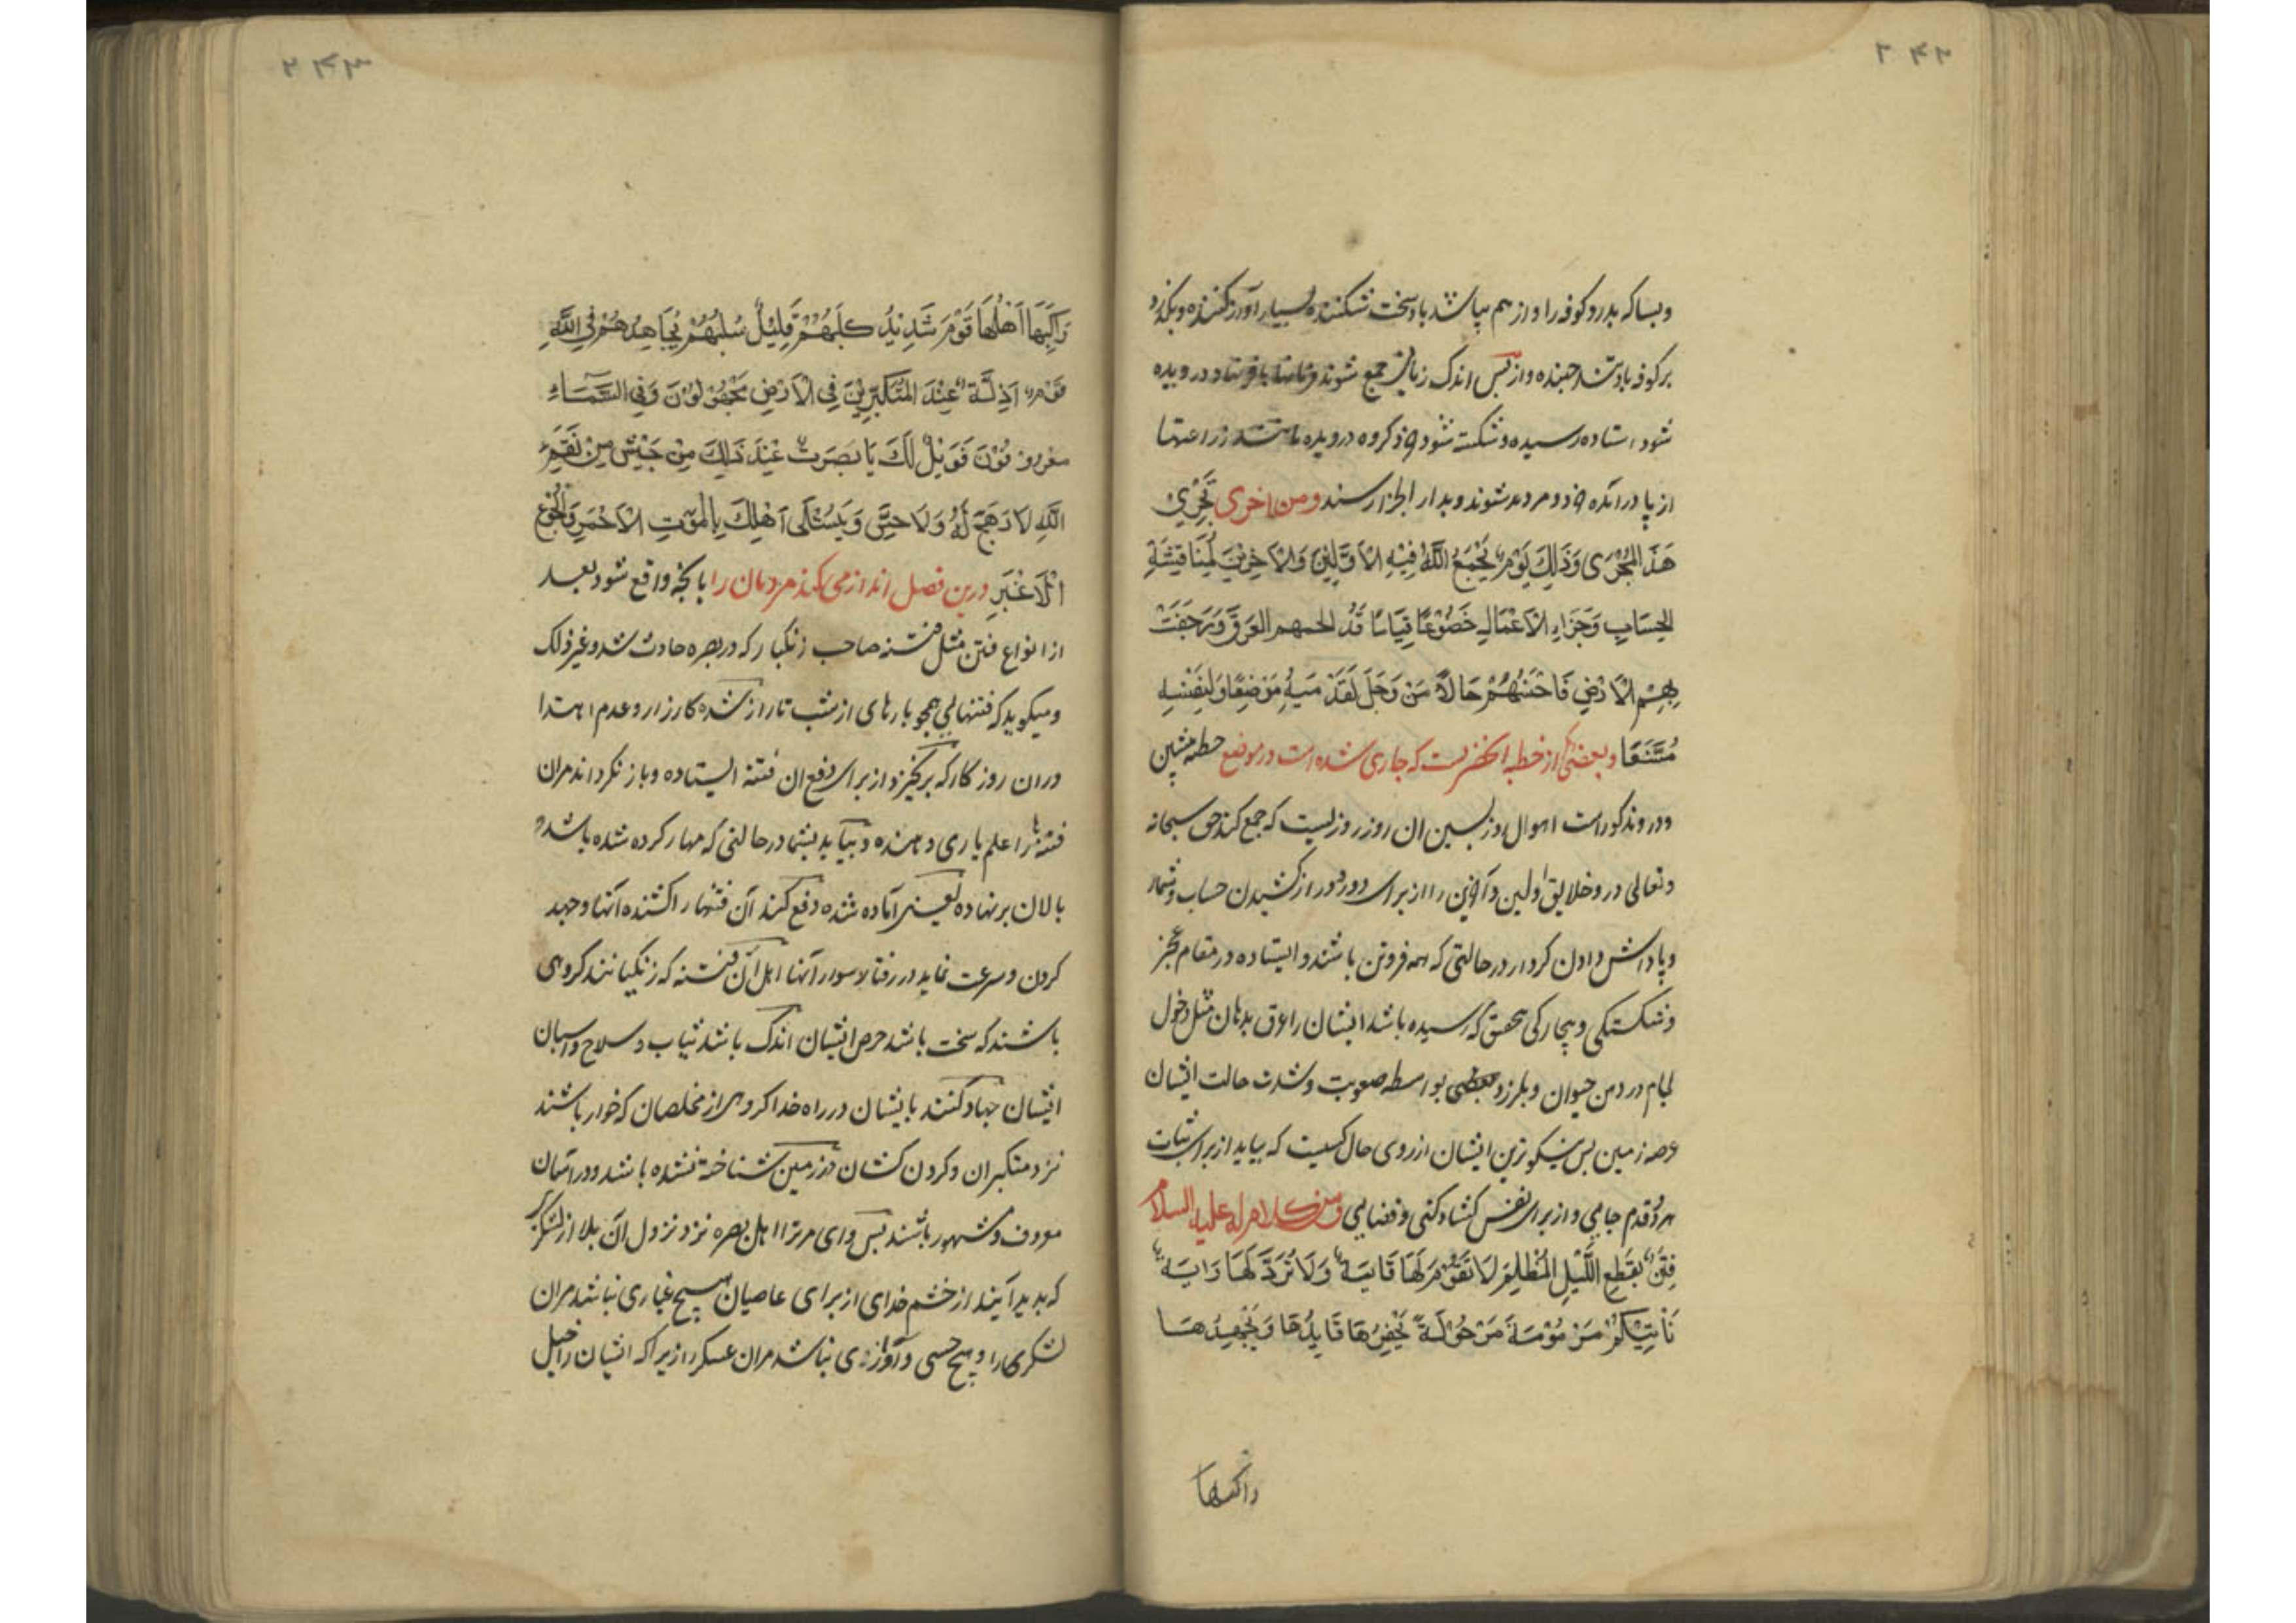 ۲۴۲
و بسا که بدرد کوفه را و از هم بپاشد باد سخت شکننده بسیار آواز کننده و بگذرد
بر کوفه باد تند جهنده و از پس اندک زمانی جمع شوند در وبده
شود ایستاده رسیده و شکسته شود درویده زراعتها
از پا درآمده شوند و بدار الجزا رسند ومن اخری تَجْرِی
هَذَا المُجْرَی وَذَلِكَ یَوْمٌ یَجْمَعُ اللَّهُ فِیْهِ الْاَوَّلِیْنَ وَالْاٰخِرِیْنَ لِمُنَاقَشَةِ
الحِسَابِ وَجَزَاءِ الْاَعْمَالِ خُضُوْعًا قِیَامًا قَدْ الجمهم العَرَقُ وَرَجَفَتْ
بِهِمُ الْاَرْضُ فَاَحْسَنُهُمْ حَالًا مَنْ وَجَدَ لِقَدَمَیْهِ مَوْضِعًا وَلِنَفْسِهِ
مُتَّسَعًا و بعضی از خطبه آنحضرتست که جاری شده است در موضع خطبه پیشین
و در و مذکور است اهوال روز پسین ان روز روزیست که جمع کند حق سبحانه
و تعالی در و خلایق اولین و آخرین را از برای دور دور از کشیدن حساب و شمار
و پاداش دادن کردار در حالتی که همه فروتن باشند و ایستاده در مقام عجز
و شکستگی و بیچارکی بتحقیق که رسیده باشد ایشان را عرق بدهان مثل دخول
لجام در دهن حیوان و بلرزد بواسطه صعوبت و شدت حالت ایشان
عرصه زمین پس نیکوترین ایشان از روی حال کسیست که بیابد از برای ثبات
هر دو قدم جایی و از برای نفس کشادکی و فضایی ومن كلام له علیه السلام
فِتَنٌ کَقِطَعِ اللَّیْلِ الْمُظْلِمِ لَا تَقُوْمُ لَهَا قَائِمَةٌ وَلَا تُرَدُّ لَهَا رَایَةٌ
تَاْتِیْکُمْ مَزْمُوْمَةً مَرْحُوْلَةً یَحْفِزُهَا قَائِدُهَا وَیُجْهِدُهَا
راکبها
۲۴۳
رَاکِبُهَا اَهْلُهَا قَوْمٌ شَدِیْدٌ کَلَبُهُمْ قَلِیْلٌ سَلَبُهُمْ یُجَاهِدُهُمْ فِی اللَّهِ
قَوْمٌ اَذِلَّةٌ عِنْدَ الْمُتَکَبِّرِیْنَ فِی الْاَرْضِ مَجْهُوْلُوْنَ وَفِی السَّمَاءِ
مَعْرُوْفُوْنَ فَوَیْلٌ لَكَ یَا بَصَرَتُ عِنْدَ ذَلِكَ مِنْ جَیْشٍ مِنْ نِقَمِ
اللَّهِ لَا رَهَجَ لَهُ وَلَا حِسَّ وَیَسُبْتَلَی اَهْلُكِ بِالْمَوْتِ الْاَحْمَرِ وَالْجُوْعِ
الْاَغْبَرِ درین فصل انداز می کند مردمان را با بآنچه واقع شود بعد
از انواع فتن مثل فتنه صاحب زنکبار که در بصره حادث شد و غیر ذلک
و میکوید که فتنهایی همچو بارهای از شب تار از شده کارزار و عدم اهتدا
در ان روز کار که برنخیزد از برای دفع ان فتنه ایستاده و باز نکرداند مران
فتنه را علم یاری دهنده و بیاید بشما در حالتی که مهار کرده شده باشد و
بالان برنهاده یعنی آماده شده دفع کند آن فتنها را کشنده آنها و جهد
کردن و سرعت نماید در رفتار سوار آنها اهل آن فتنه که زنکیانند کروهی
باشند که سخت باشد حرص ایشان اندک باشد ثیاب و سلاح و اسبان
ایشان جهاد کنند بایشان در راه خدا کروهی از مخلصان که خوار باشند
نزد متکبران و کردن کشان در زمین شناخته نشده باشند و در آسمان
معروف و مشهور باشند پس وای مر ترا اهل بصره نزد نزول آن بلا از لشکر
که بدید آیند از خشم خدای از برای عاصیان هیچ غباری نباشد مران
لشکرها را و هیچ حسی و آوازی نباشد مران عسکر از برا که ایشان را خیل